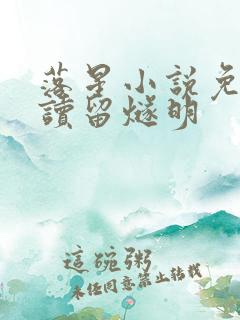 落星小说免
讀留燧明
這碗粥
未任同意禁止转載